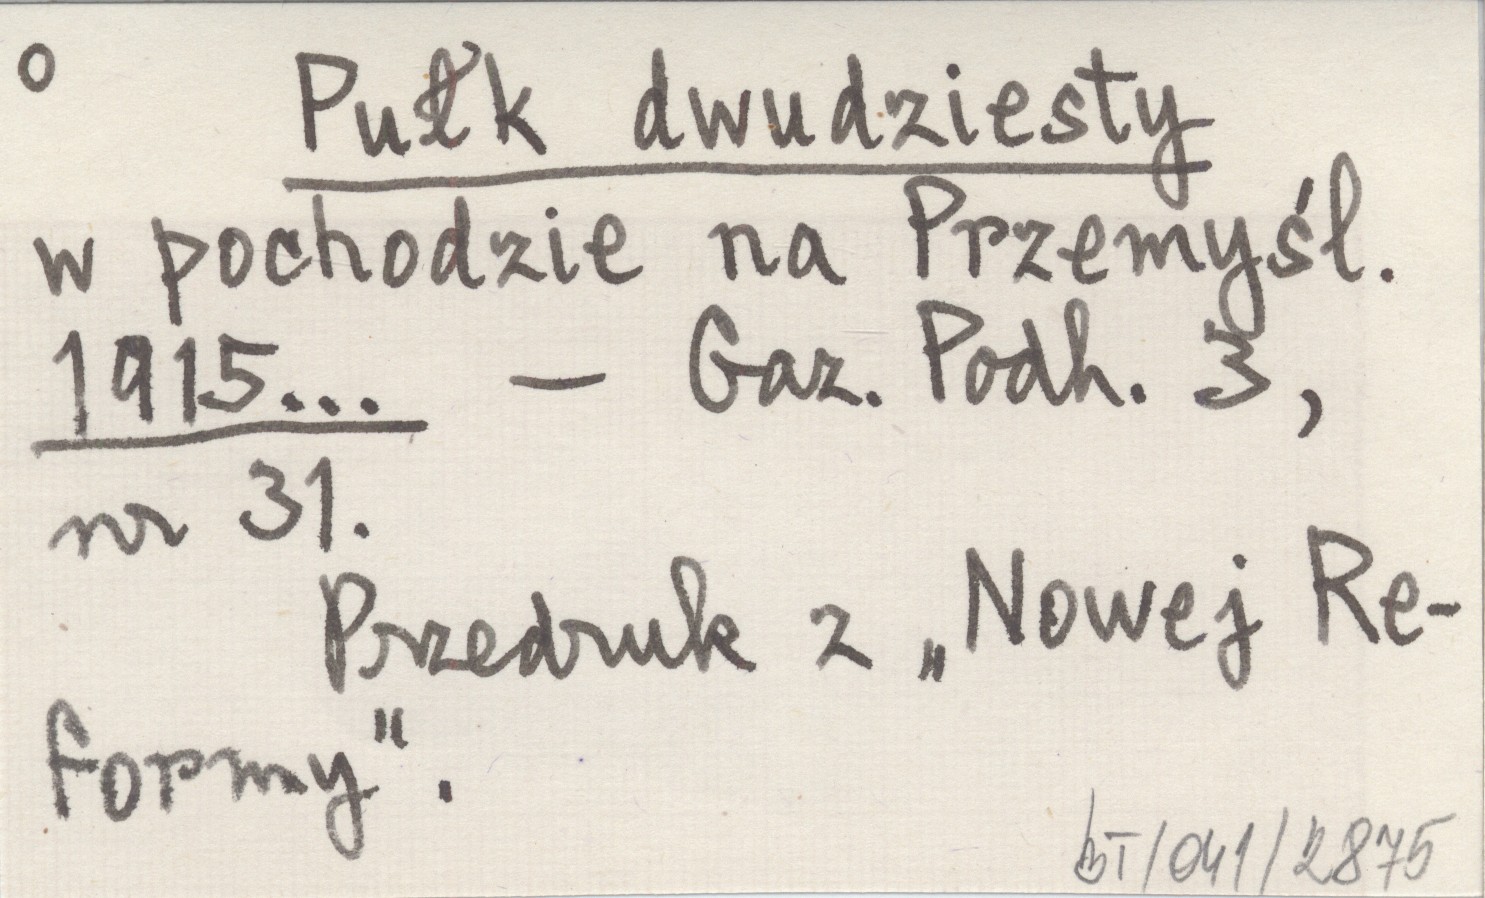 o
Pułk dwudziesty
w pochodzie na Przemyśl.
1915... — Gaz. Podh. 3,
nr 31.
Przedruk z „Nowej Re-
formy".
BT/041/2875